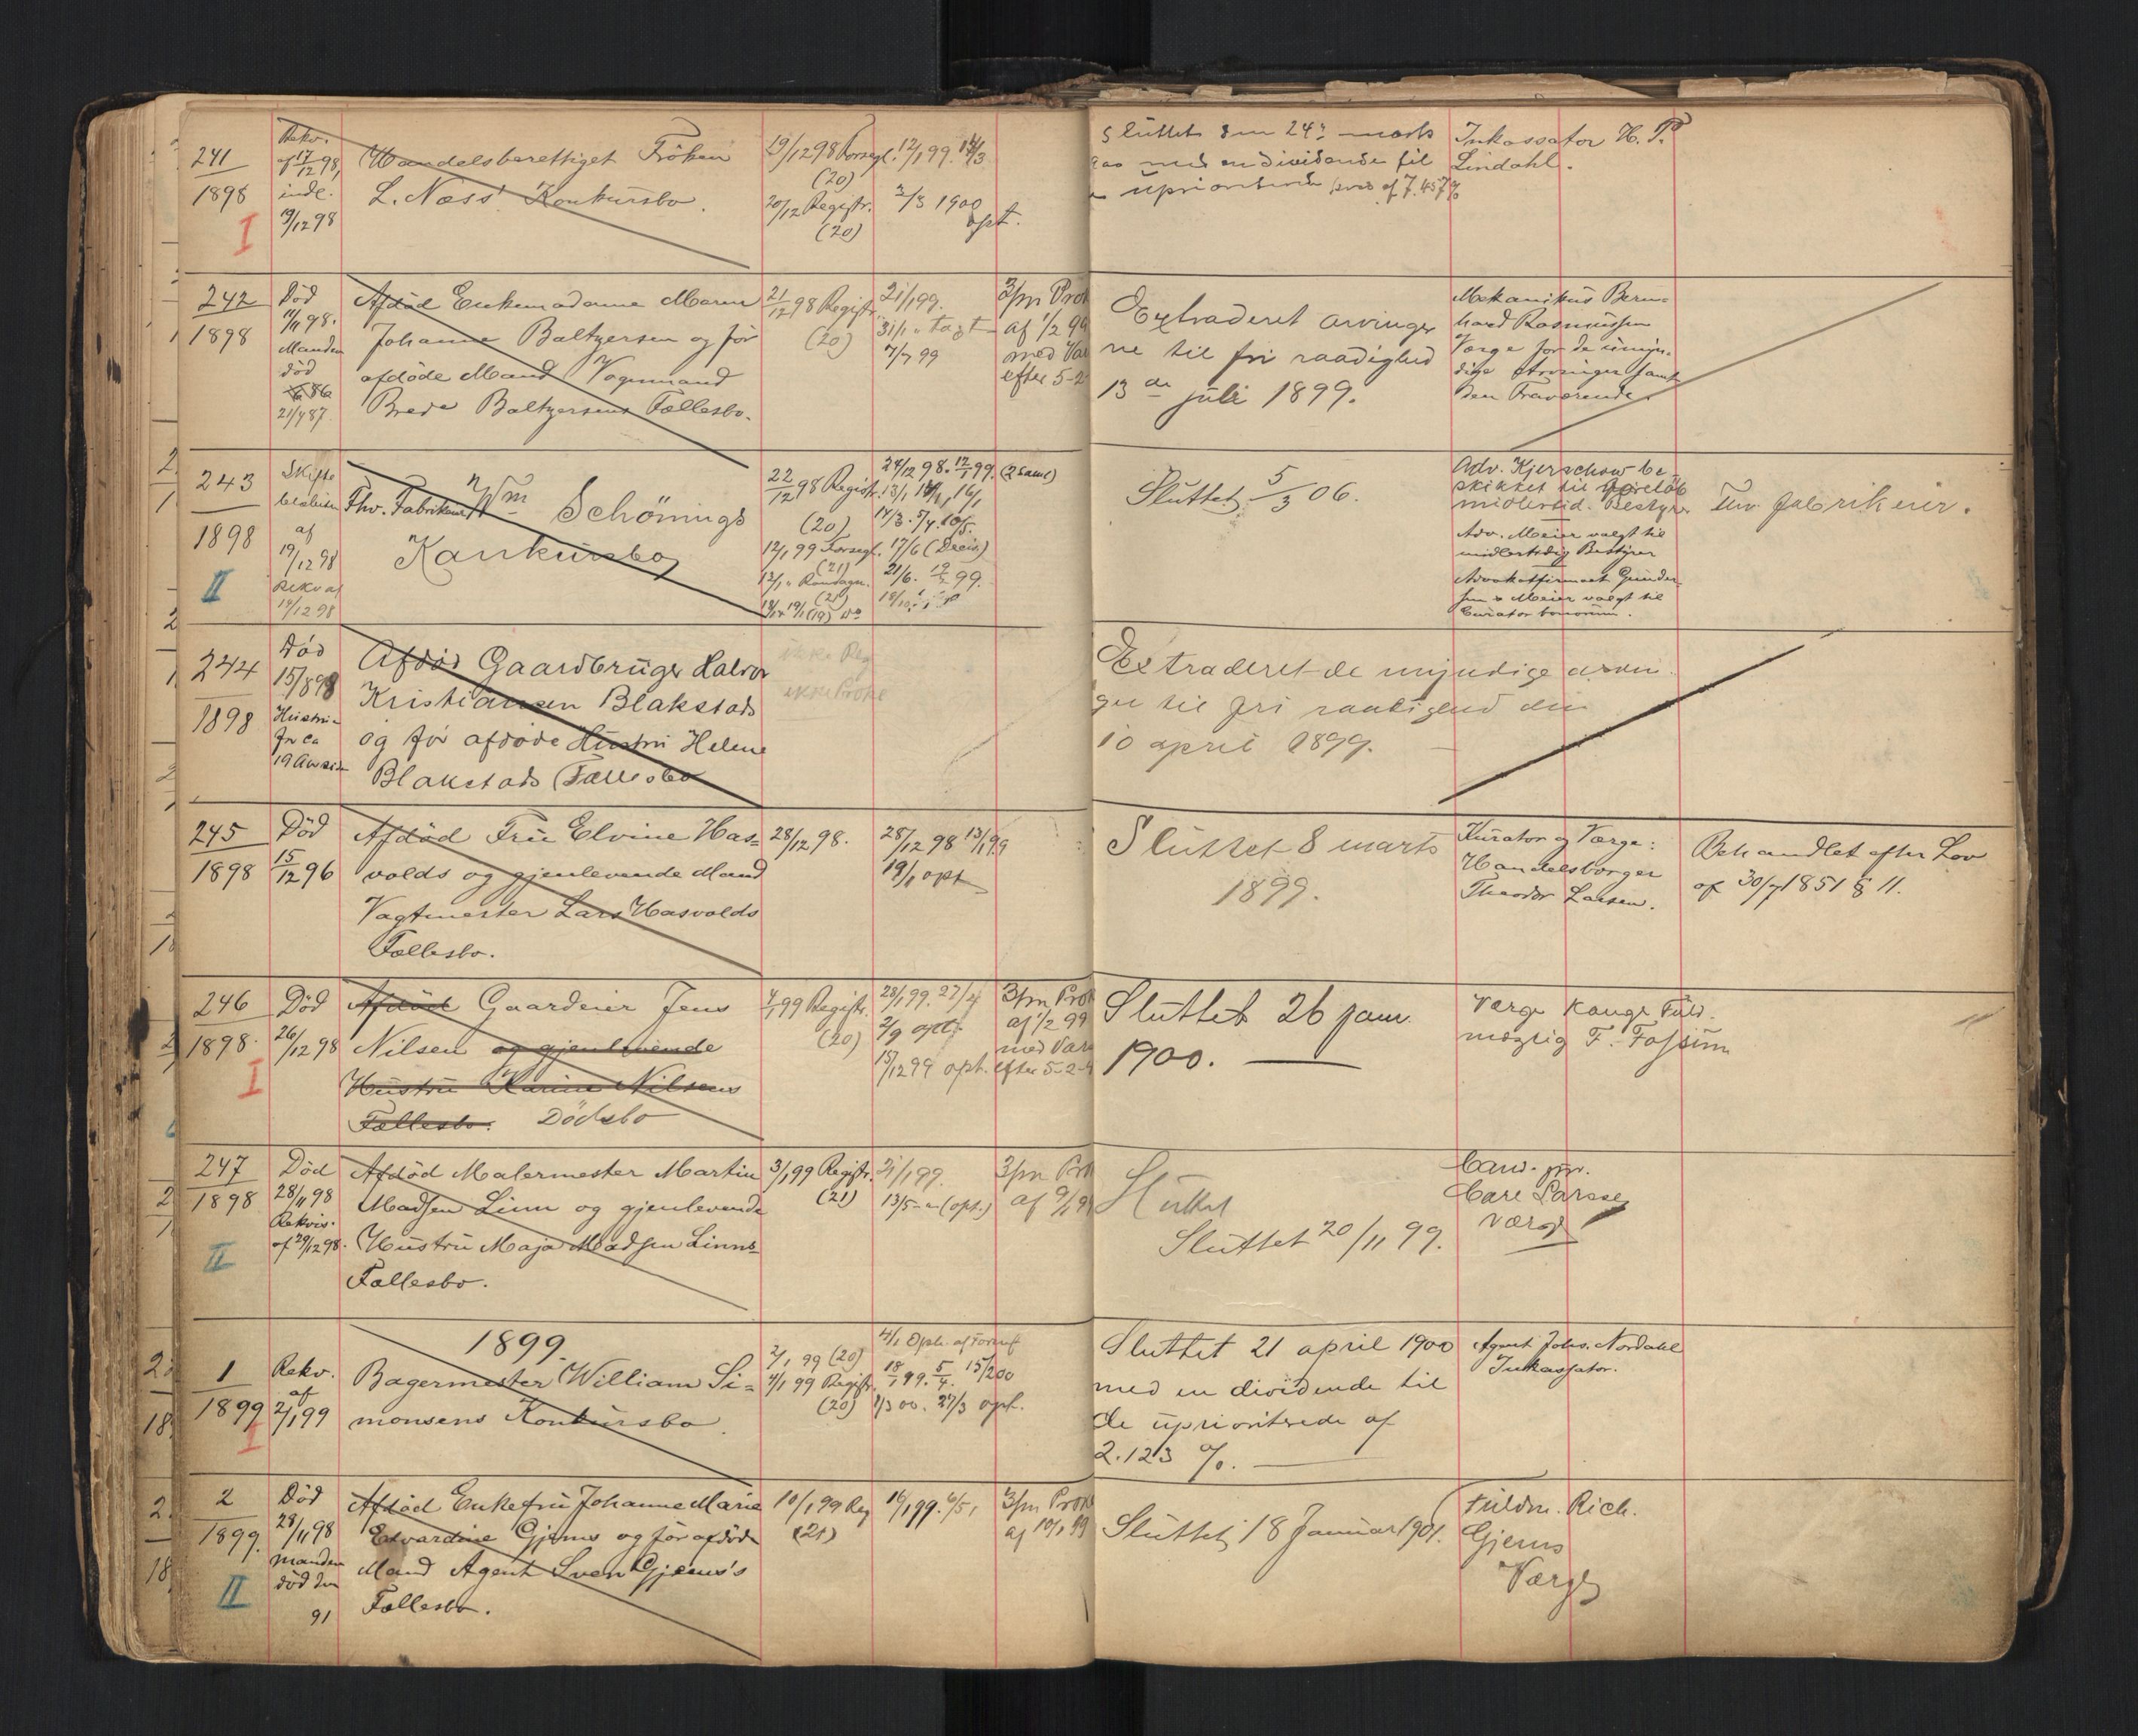 241
1898
I
Rekv.
af 17/12 98,
indl.
19/12 98
Handelsberettiget Fröken
L. Næss' Konkursbo.
19/12 98 Forsegl.
(20)
20/12 Registr.
(20)
12/1 99. 14/3
2/3 1900
opt.
Sluttet den 24de marts
med en dividende til
uprioriterede krav af 7.457%
Inkassator H. P.
Lindahl.
242
1898
Död
11/11 98.
Manden
död
21/4 87
Afdöd Enkemadame Maren
Johanne Baltzersen og för
afdöde Mand Vognmand
Brede Baltzersens Fællesbo.
21/12 98 Registr.
(20)
21/1 99.
31/1 " tagt
7/7 99
3/m Prok
af 1/2 99
med Var
efter 5-2
Extraderet arvinger
ne til fri raadighed
13de juli 1899.
Mekanikus Bern=
hard Rasmussen
Værge for de umyn=
dige Arvinger samt
den Fraværende.
243
1898
II
Skifte
beslutn
af
19/12 98
Rekv af
19/12 98
Fhv. Fabrikeier Wm Schönings
Konkursbo
22/12 98 Registr.
(20)
12/1 99 Forsegl.
(21)
13/1 "
(21)
24/12 98. 12/1 99. (2 saml)
13/1 14/1, 16/1
14/3. 5/4. 10/5.
17/6 (Decis.)
21/6.
Sluttet 5/3 06.
Adv. Kjerschow be
skikket til
midlertid. Bestyrer
Adv. Meier valgt til
midlertidig Bestyrer
Advokatfirmaet Gunder=
sen & Meier valgt til
Curator bonorum.
Fhv. fabrikeier.
244
1898
Död
15/8 98
Hustru
for ca
19 Aar siden
Afdöd Gaardbruger Halvor
Kristiansen Blakstads
og för afdöde Hustru Helene
Blakstads Fællesbo
ikke Reg
ikke Prokl
Extraderet de myndige arvin
ger til fri raadighed den
10 april 1899.
245
1898
Död
15/12 96
Afdöd Fru Elvine Has=
volds og gjenlevende Mand
Vagtmester Lars Hasvolds
Fællesbo.
28/12 98.
28/12 98 13/1 99
19/1 opt
Sluttet 8 marts
1899.
Kurator og Værge:
Handelsborger
Theodor Larsen.
Behandlet efter Lov
af 30/7 1851 § 11.
246
1898
I
Död
26/12 98
Afdöd Gaardeier Jens
Nilsen og gjenlevende
Hustru Karine Nilsens
Fællesbo. Dödsbo
4/1 99 Registr.
(20)
28/1 99. 27/4
2/9 opt.
15/12 99 opt.
3/m Prok
af 1/2 99
med Var
efter 5-2-9
Sluttet 26 janr.
1900.
Værge Kange Fuld.
mægtig F. Fossum
247
1898
II
Död
28/11 98
Rekvis.
af 29/12 98.
Afdöd Malermester Martin
Madsen Linn og gjenlevende
Hustru Maja Madsen Linns
Fællesbo.
3/1 99 Registr.
(21)
21/1 99.
13/5 - " (opt.)
3/m Prk
af 9/1 99
Sluttet
Sluttet 20/11 99.
Cand. jur.
Carl Larssen
Værge
1899.
1
1899
I
Rekv.
af
2/1 99
Bagermester William Si=
monsens Konkursbo.
2/1 99 (20)
4/1 99 Registr.
(20)
4/1 Oph. af Forsegl
18/1 99. 5/4. 15/2 00
1/3 00. 27/3 opt.
Sluttet 21 april 1900
med en dividende til
de uprioriterede af
2.123 %.
Agent Johs. Nordahl
Inkassator.
2
1899.
II
Död
28/11 98
manden
död den
91
Afdöd Enkefru Johanne Marie
Edvardine Gjems og för afdöde
Mand Agent Sven Gjems's
Fællesbo.
10/1 99 Reg
(21)
16/1 99. 6/5,
3/m Prok
af 10/1 99
Sluttet 18 Januar 1901.
Fuldm. Rich.
Gjems
Værge